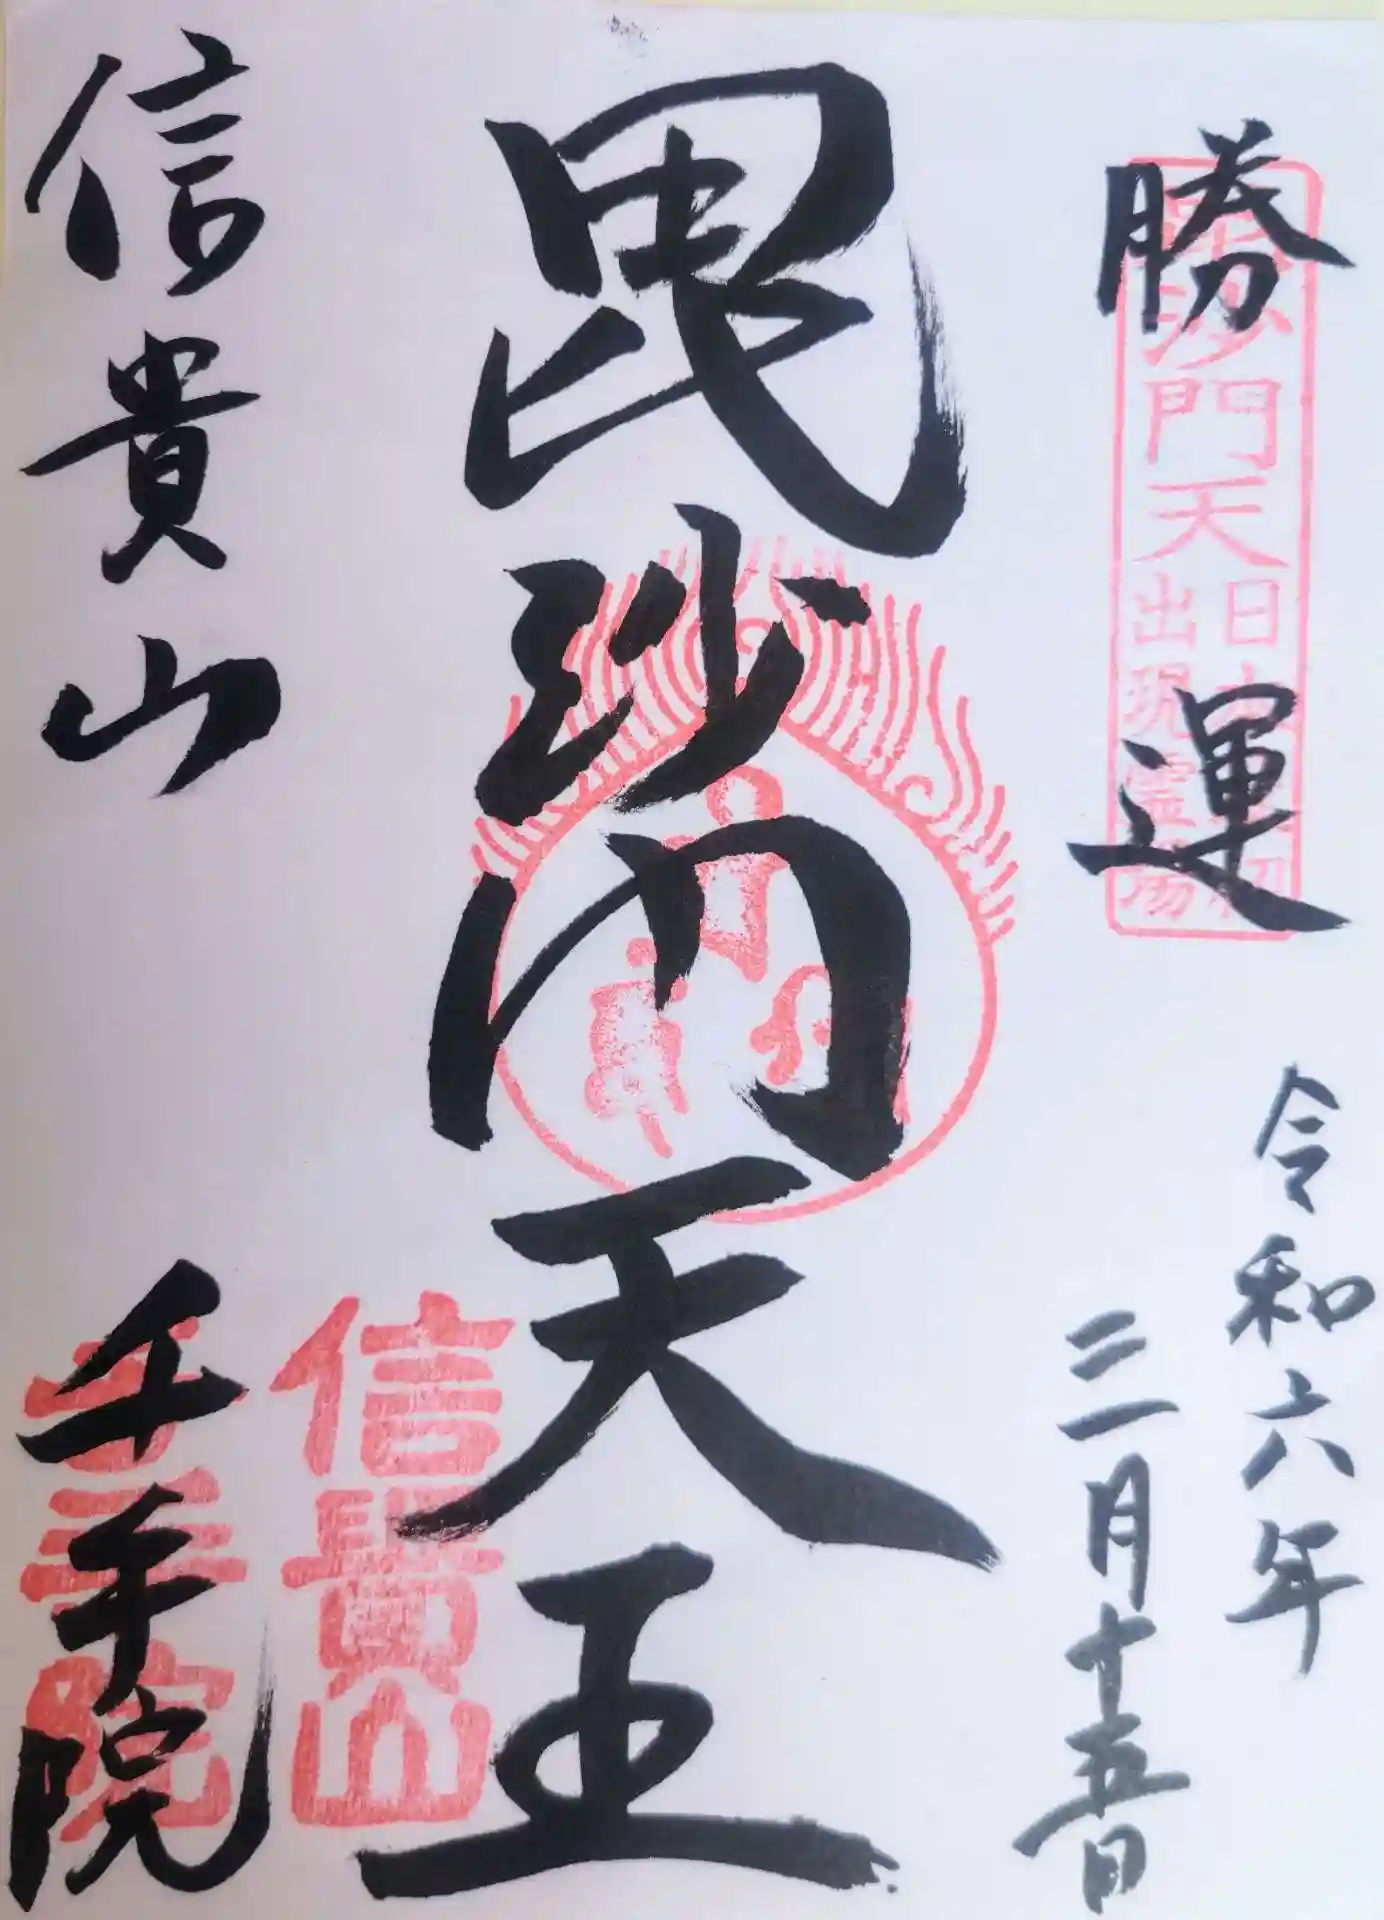 勝運
毘沙門天
日本最初
出現霊場
令和六年
三月十五日
毘沙門天王
信貴山
信貴山
千手院
千手院